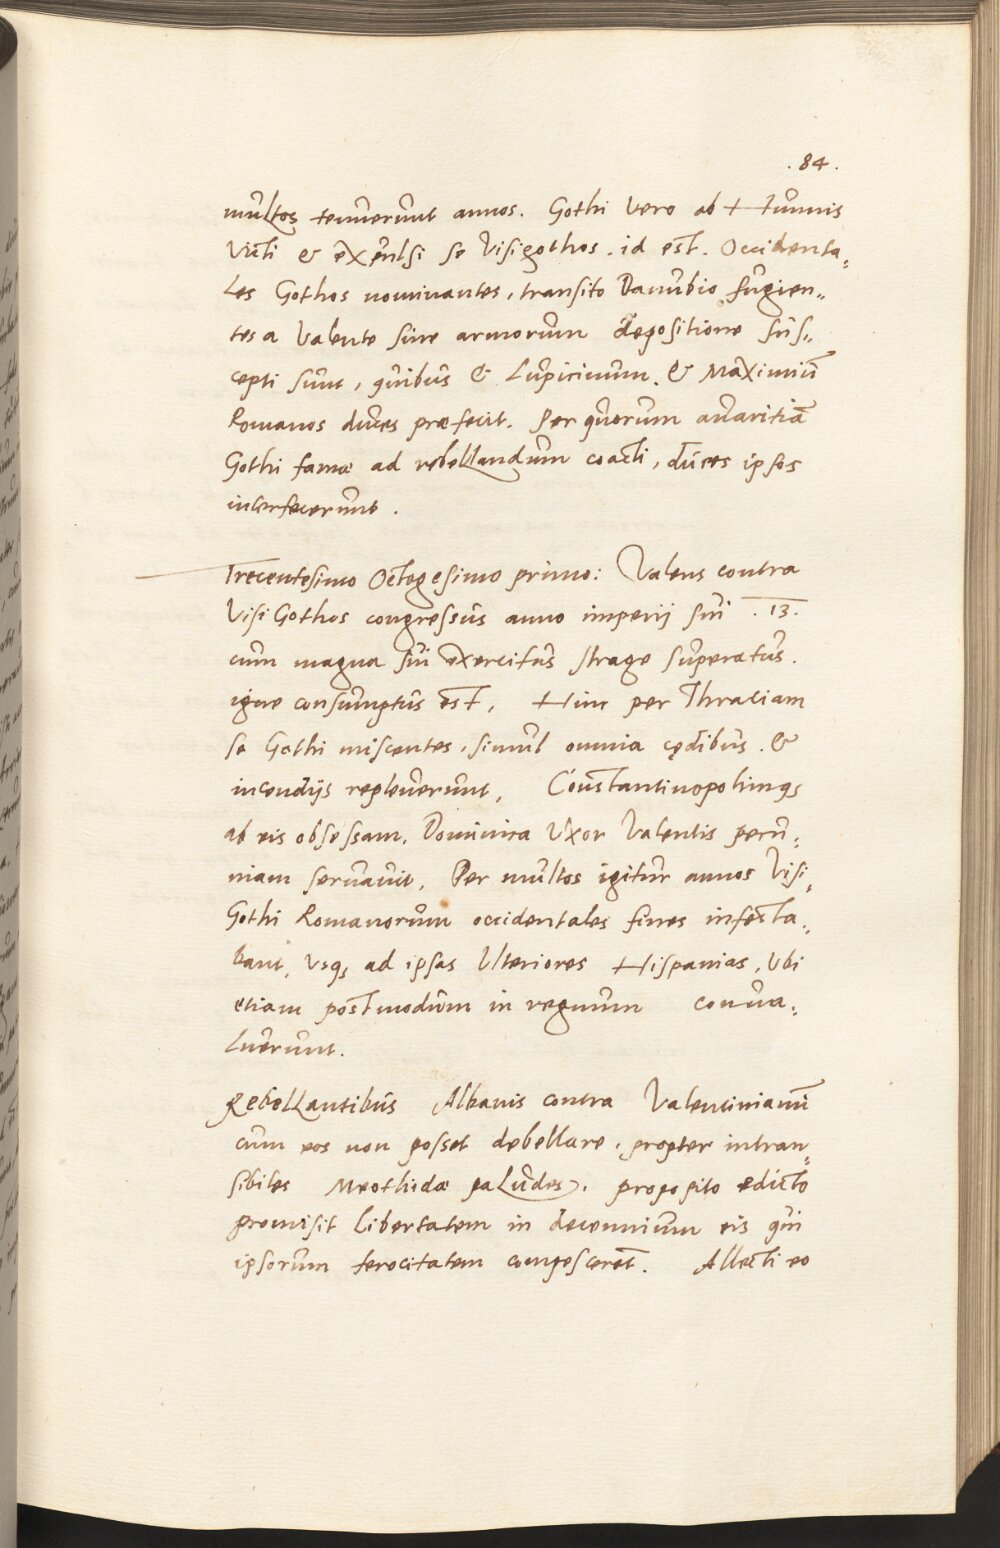 .84.
multos tenuerunt annos. Gothi vero ab Hunnis
victi & expulsi se Visigothos. id est. Occidenta,,
les Gothos nominantes, transito Danubio fugien,,
tes a Valente sine armorum depositione sus,,
cepti sunt, quibus & Lupicinum. & Maximiū
Romanos duces præfecit. Per quorum auaritiā
Gothi fame ad rebellandum coacti, duces ipsos
interfecerunt.
Trecentesimo Octogesimo primo: Valens contra
VisiGothos congressus anno imperij sui .13.
cum magna sui exercitus strage superatus.
igne consumptus est, Hinc per Thraciam
se Gothi miscentes, simul omnia cędibus. &
incendijs repleuerunt, Constantinopolimq3
ab eis obsessam. Dominica Vxor Valentis pecu,,
niam seruauit, Per multos igitur annos Visi,,
Gothi Romanorum occidentales fines infesta,,
bant, vsq3 ad ipsas Vlteriores Hispanias, Vbi
etiam postmodum in regnum conua,,
luerunt.
Rebellantibus Albanis contra Valentinianū
cum eos non posset debellare. propter intran,,
sibiles Meothidæ paludes. proposito edicto
promisit libertatem in decennium eis qui
ipsorum ferocitatem compesceret. Allecti eo